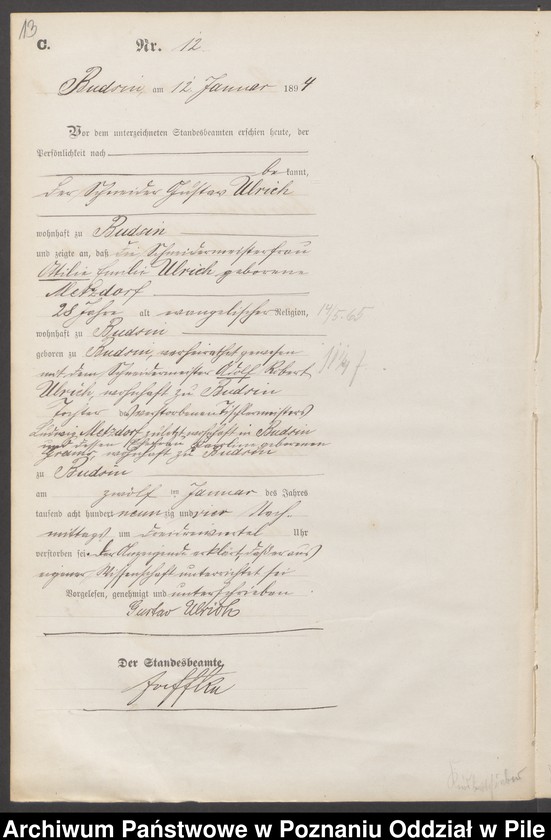 13
C.
Nr. 12
Budsin, am 12 Januar 1894
Vor dem unterzeichneten Standesbeamten erschien heute, der
Persönlichkeit nach
be kannt,
der Schneider Gustav Ulrich
wohnhaft zu Budsin
und zeigte an, daß die Schneidermeisterfrau
Ottilie Emilie Ulrich geborene
Metzdorf
28 Jahre alt evangelischer Religion, 14/5.65
wohnhaft zu Budsin
geboren zu Budsin, verheirathet gewesen
mit dem Schneidermeister Adolf Robert
Ulrich, wohnhaft zu Budsin
Tochter des verstorbenen Tischlermeisters
Ludwig Metzdorf zuletzt wohnhaft in Budsin
und dessen Ehefrau Pauline geborenen
wohnhaft zu Budsin
zu Budsin
am zwölf ten Januar des Jahres
tausend acht hundert neunzig und vier Nach-
mittags um dreidreiviertel Uhr
verstorben sei. Der Anzeigende erklärt, daß er aus
eigener Wissenschaft unterrichtet sei
Vorgelesen, genehmigt und unterschrieben
Gustav Ulrich
Der Standesbeamte,
Archiwum Państwowe w Poznaniu Oddział w Pile